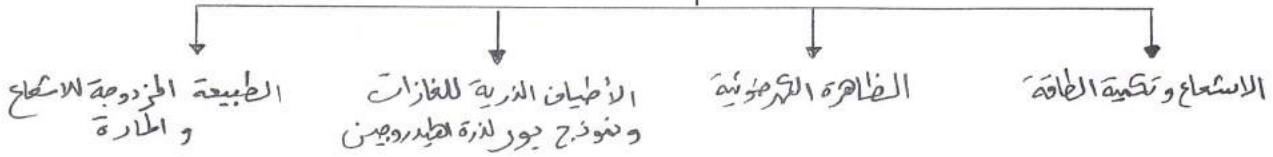 الاشعاع وتكمية الطاقة
الظاهرة الكهرضوئية
الأطياف الذرية للغازات
ونموذج بور لذرة الهيدروجين
الطبيعة المزدوجة للاشعاع
والمادة